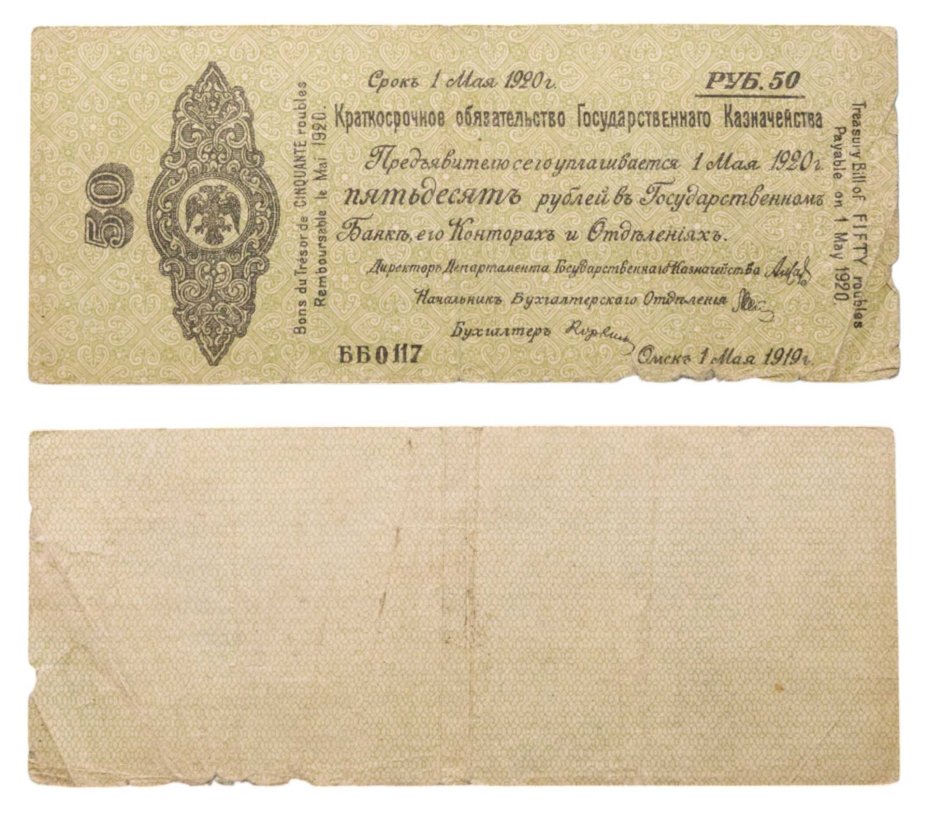 50
Bons du Trésor de CINQUANTE roubles
Remboursable le Mai 1920.
Срокъ 1 Мая 1920 г.
РУБ. 50
Краткосрочное обязательство Государственнаго Казначейства
Предъявителю сего уплачивается 1 Мая 1920 г.
пятьдесятъ рублей въ Государственномъ
Банкѣ, его Конторахъ и Отдѣленіяхъ.
Директоръ Департамента Государственнаго Казначейства
Начальникъ Бухгалтерскаго Отдѣленія
Бухгалтеръ
ББ0117
Омскъ 1 Мая 1919 г.
Treasury Bill of FIFTY roubles
Payable on 1 May 1920